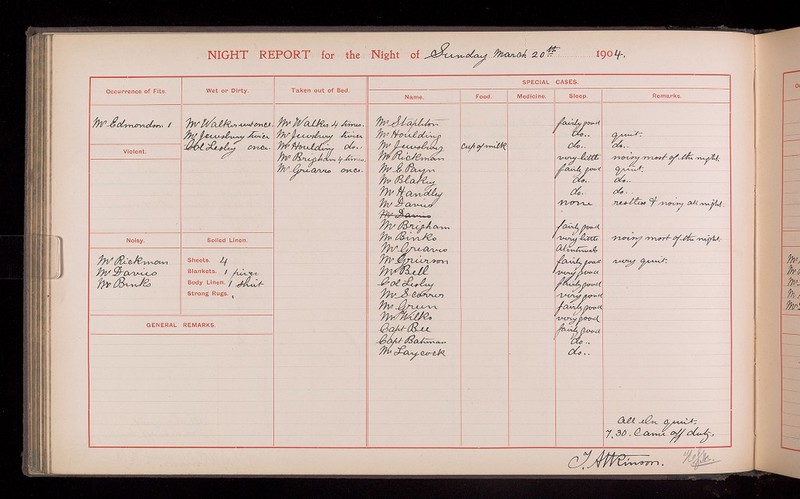 NIGHT REPORT for the Night of Sunday March 20th 1904.
Occurrence of Fits.
Wet or Dirty.
Taken out of Bed.
SPECIAL CASES.
Name.
Food.
Medicine.
Sleep.
Remarks.
Mr Edmondson 1
Violent.
Noisy.
Mr Rickman
Mr Davies
Mr Binks
Mr Walker once
Mr Jewsbury twice
Col Lesley once
Soiled Linen.
Sheets. 4
Blankets. 1 piece
Body Linen. 1 Shirt
Strong Rugs. 1
GENERAL REMARKS.
Mr Walker 4 times.
Mr Jewsbury twice
Mr Houlding do..
Mr Brigham 4 times
Mr Greaves once
Mr Stapleton fairly good
Mr Houlding do.. quiet.
Mr Jewsbury cup of milk do.. do..
Mr Rickman very little noisy most of the night.
Mr E Payn fairly good quiet.
Mr Blakey do. do..
Mr Handley do. do..
Mr Davies none restless & noisy all night.
Mr Davies
Mr Brigham fairly good
Mr Binks very little noisy most of the night.
Mr Greaves
Mr Grierson fairly good very quiet.
Mr Bell very good
Col Lesley fairly good
Mr Scorrer very good
Mr Green fairly good
Mr Wilks very good
Capt Bee fairly good
Capt Bateman do..
Mr Laycock do..
All else quiet.
7.30. Came off duty.
T. Atkinson.